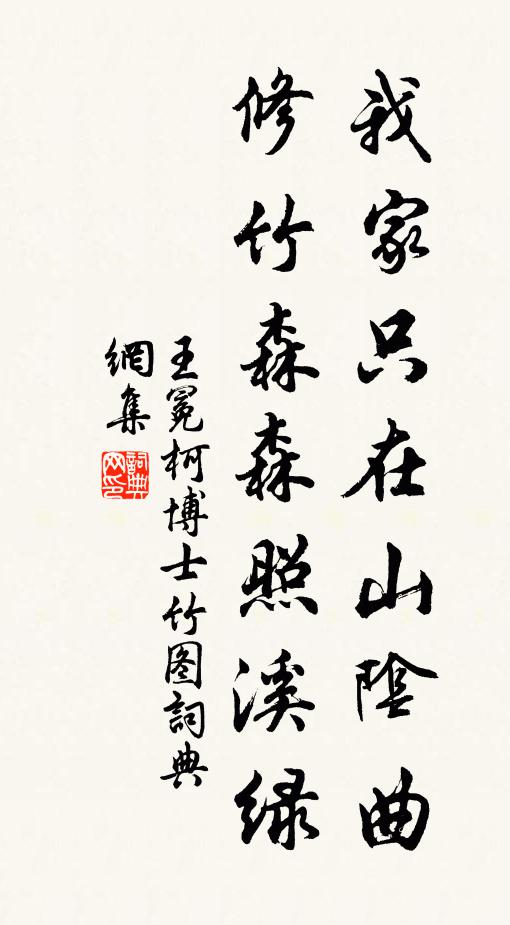 我家只在山陰曲
修竹森森照溪绿
王冕柯博士竹图詞典
網集
詞典网印